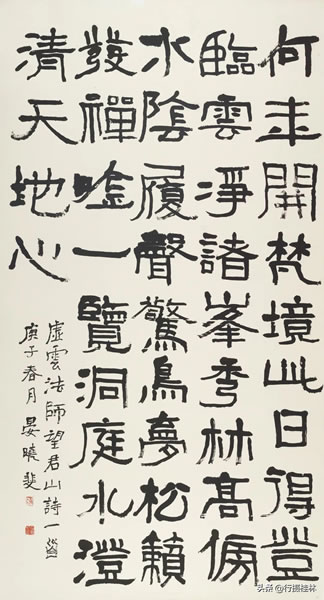 何年開梵境此日得登
臨雲淨諸峯秀林高傍
水陰履聲驚鳥夢松籟
發禪唫一覽洞庭水澄
清天地心
虛雲法師望君山詩一首
庚子春月晏曉斐
头条@行摄桂林